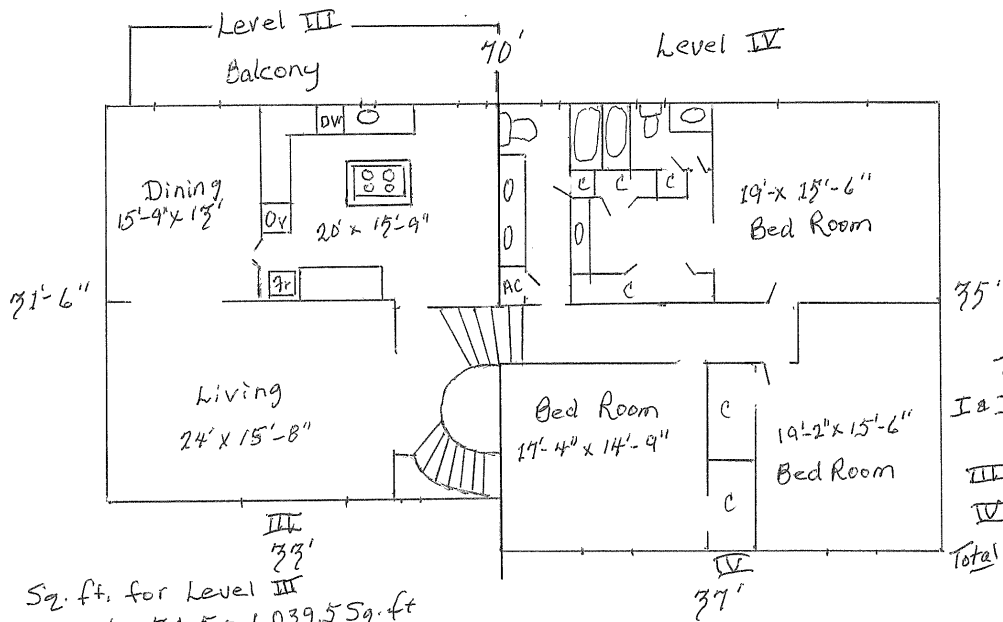 Level III
70'
Level IV
Balcony
DW
Dining
15'-9" x 13'
Ov
20' x 15'-9"
Fr
C
C
C
C
AC
19'- x 15'-6"
Bed Room
31'-6"
35'
Living
24' x 15'-8"
Bed Room
17'-4" x 14'-9"
C
C
19'-2" x 15'-6"
Bed Room
I &
III
IV
Total
III
33'
IV
37'
Sq. ft. for Level III
1,039.5 Sq. ft